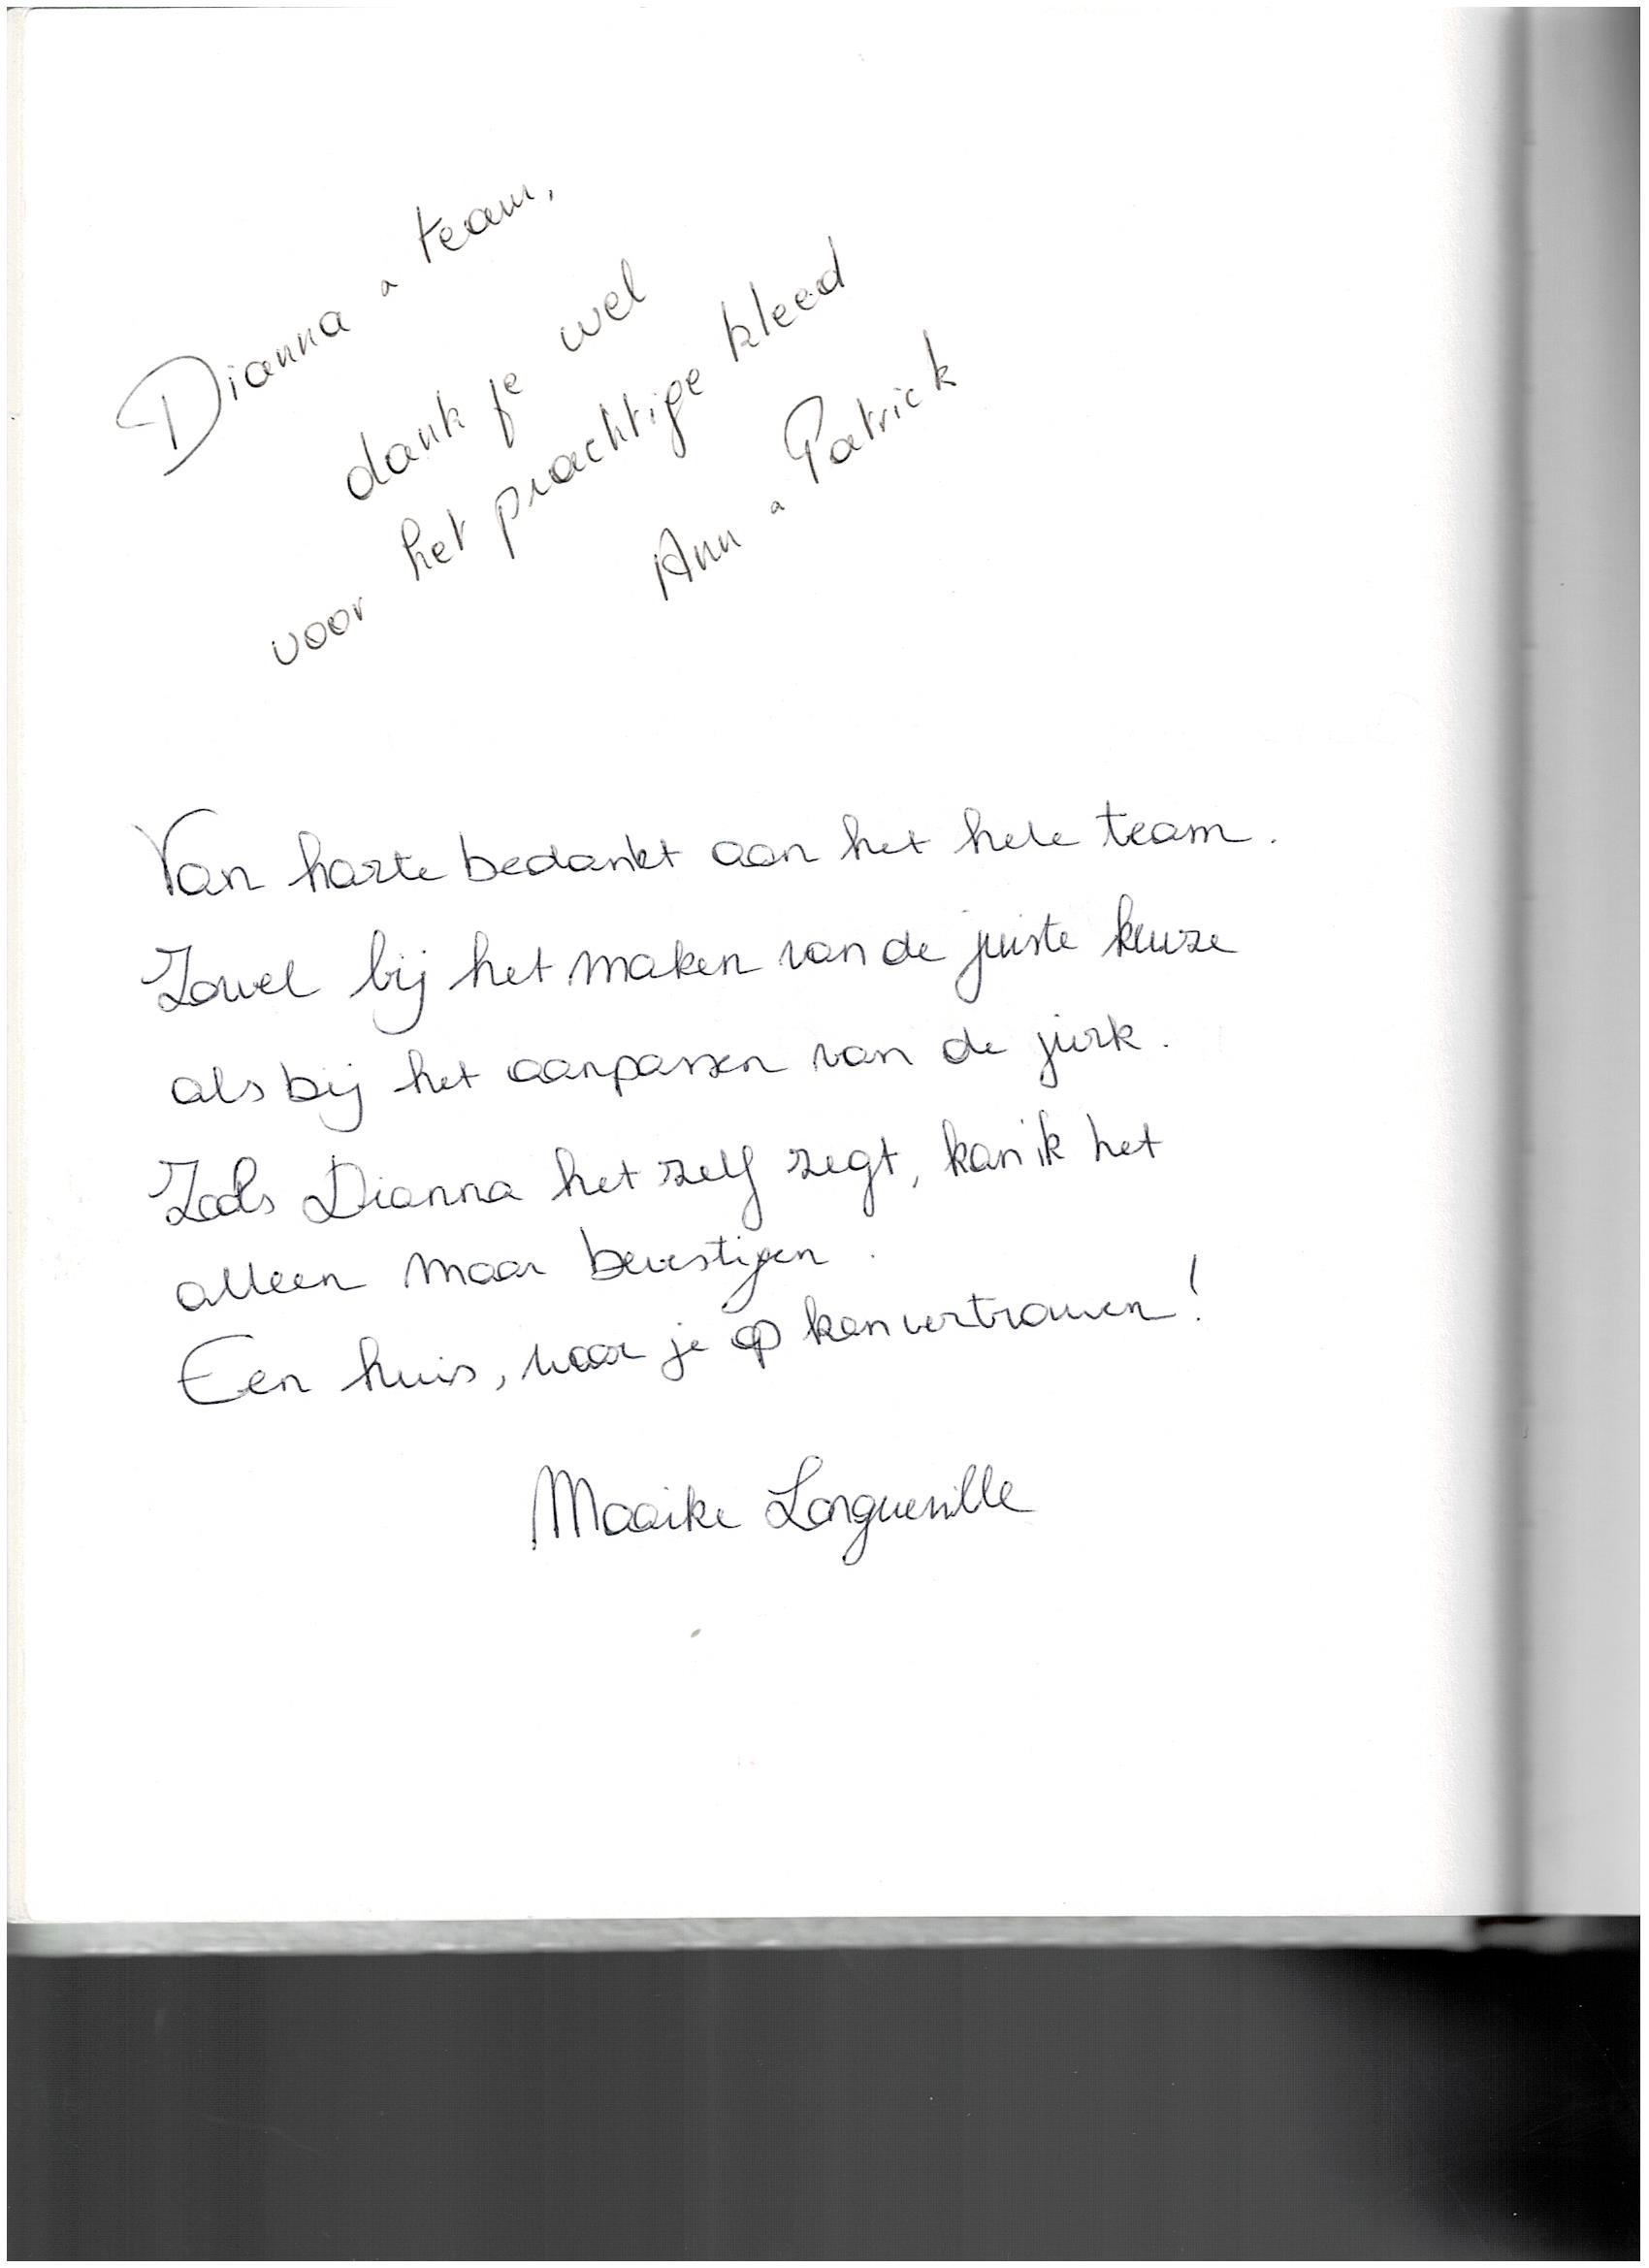 Dianna & team,
dank je wel
voor het prachtige kleed
Ann & Patrick
Van harte bedankt aan het hele team.
Zowel bij het maken van de juiste keuze
als bij het aanpassen van de jurk.
Zoals Dianna het zelf zegt, kan ik het
alleen maar bevestigen.
Een huis, waar je op kan vertrouwen!
Maaike Longueville